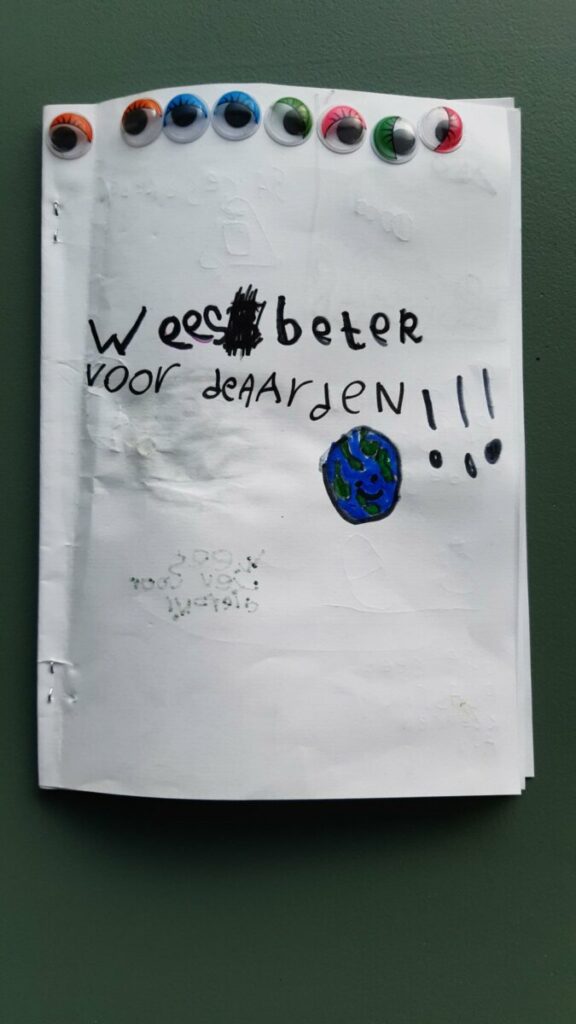 Wees beter
voor deAArdeN!!!